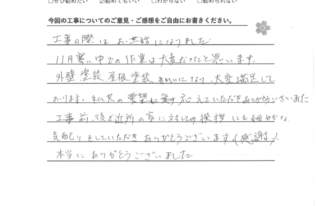 今回の工事についてのご意見・ご感想をご自由にお書きください。
工事の際はお世話になりました
11月真の中での作業は大変だったと思います。
外壁塗装、屋根塗装きれいになり、大変満足して
おります。私共の要望に応えていただきありがとうございました
工事前、後と近所の家に対しての挨拶にも細かな
気配りをしていただきありがとうございます(感謝)
本当にありがとうございました